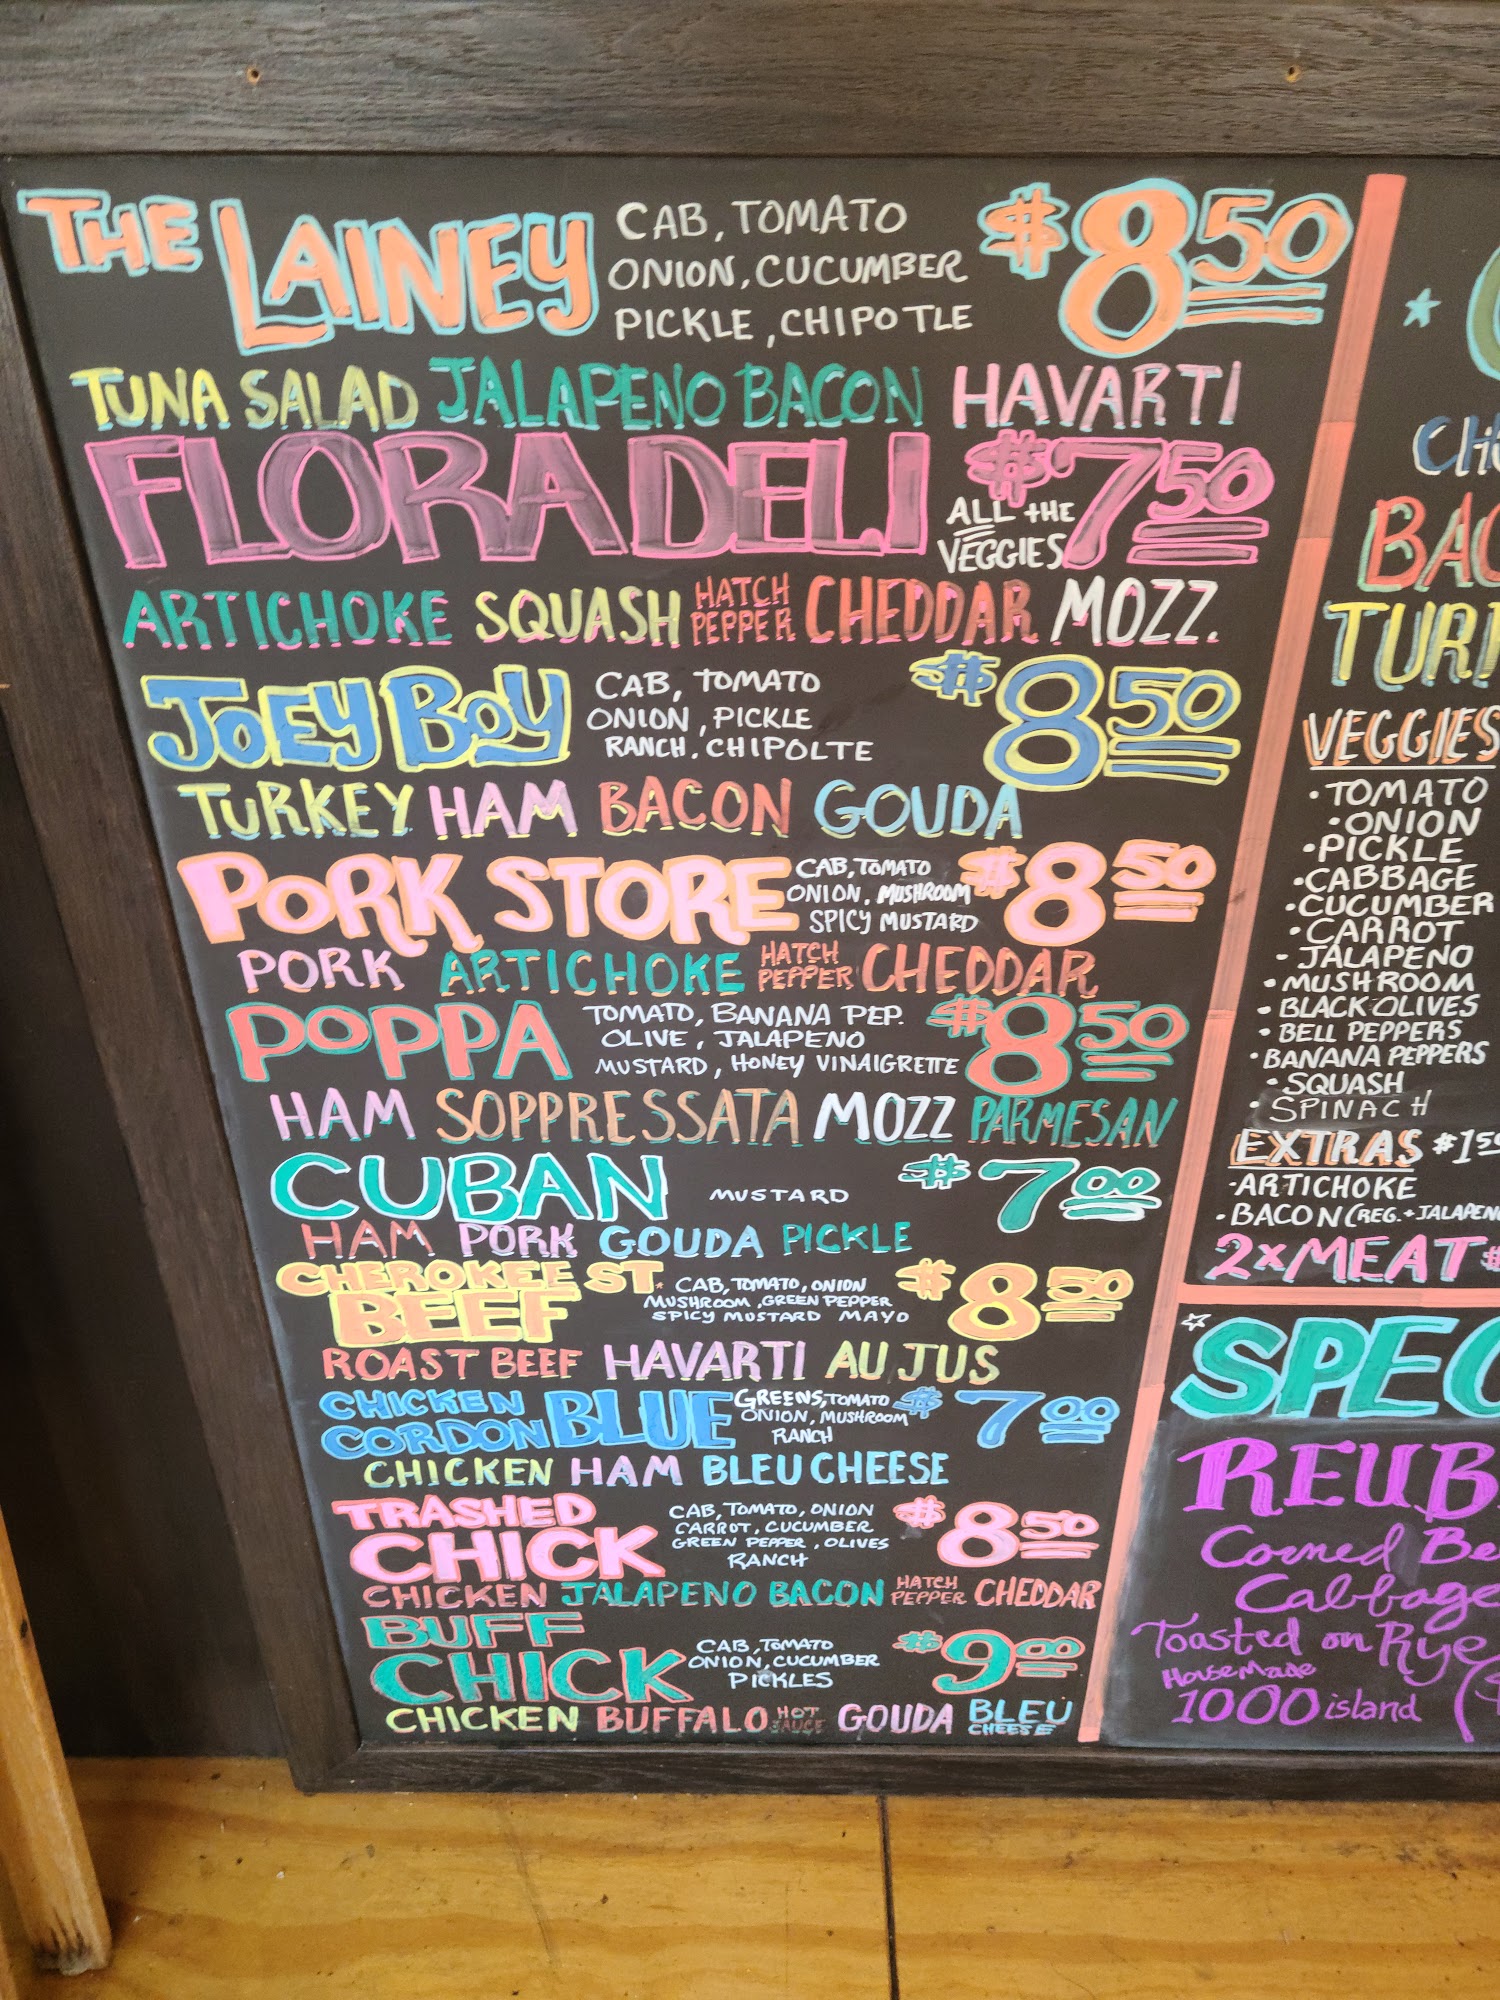 THE LAINEY
CAB, TOMATO
ONION, CUCUMBER
PICKLE, CHIPOTLE
$8.50
TUNA SALAD JALAPENO BACON HAVARTI
FLORADELI
$7.50
ALL THE
VEGGIES
ARTICHOKE SQUASH HATCH PEPPER CHEDDAR MOZZ.
JOEY BOY
CAB, TOMATO
ONION, PICKLE
RANCH. CHIPOLTE
$8.50
TURKEY HAM BACON GOUDA
PORK STORE
CAB, TOMATO
ONION, MUSHROOM
SPICY MUSTARD
$8.50
PORK ARTICHOKE HATCH PEPPER CHEDDAR
POPPA
TOMATO, BANANA PEP.
OLIVE, JALAPENO
MUSTARD, HONEY VINAIGRETTE
$8.50
HAM SOPPRESSATA MOZZ PARMESAN
CUBAN
MUSTARD
$7.00
HAM PORK GOUDA PICKLE
CHEROKEE ST.
BEEF
CAB, TOMATO, ONION
MUSHROOM, GREEN PEPPER
SPICY MUSTARD MAYO
$8.50
ROAST BEEF HAVARTI AU JUS
CHICKEN
CORDON BLUE
GREENS, TOMATO
ONION, MUSHROOM
RANCH
$7.00
CHICKEN HAM BLEU CHEESE
TRASHED
CHICK
CAB, TOMATO, ONION
CARROT, CUCUMBER
GREEN PEPPER, OLIVES
RANCH
$8.50
CHICKEN JALAPENO BACON HATCH PEPPER CHEDDAR
BUFF
CHICK
CAB, TOMATO
ONION, CUCUMBER
PICKLES
$9.00
CHICKEN BUFFALO HOT SAUCE GOUDA BLEU CHEESE
VEGGIES
•TOMATO
•ONION
•PICKLE
•CABBAGE
•CUCUMBER
•CARROT
•JALAPENO
•MUSHROOM
•BLACK OLIVES
•BELL PEPPERS
•BANANA PEPPERS
•SQUASH
•SPINACH
EXTRAS $1.50
-ARTICHOKE
-BACON (REG. + JALAPENO
2xMEAT
SPEC
REUB
Corned Be
Cabbage
Toasted on Rye
HouseMade
1000 island